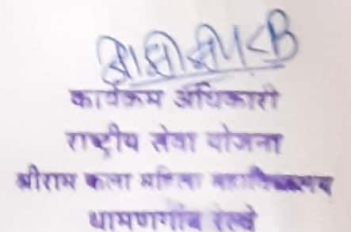 कार्यक्रम अधिकारी
राष्ट्रीय सेवा योजना
श्रीराम कला महिला महाविद्यालय
धामणगाँव रेल्वे